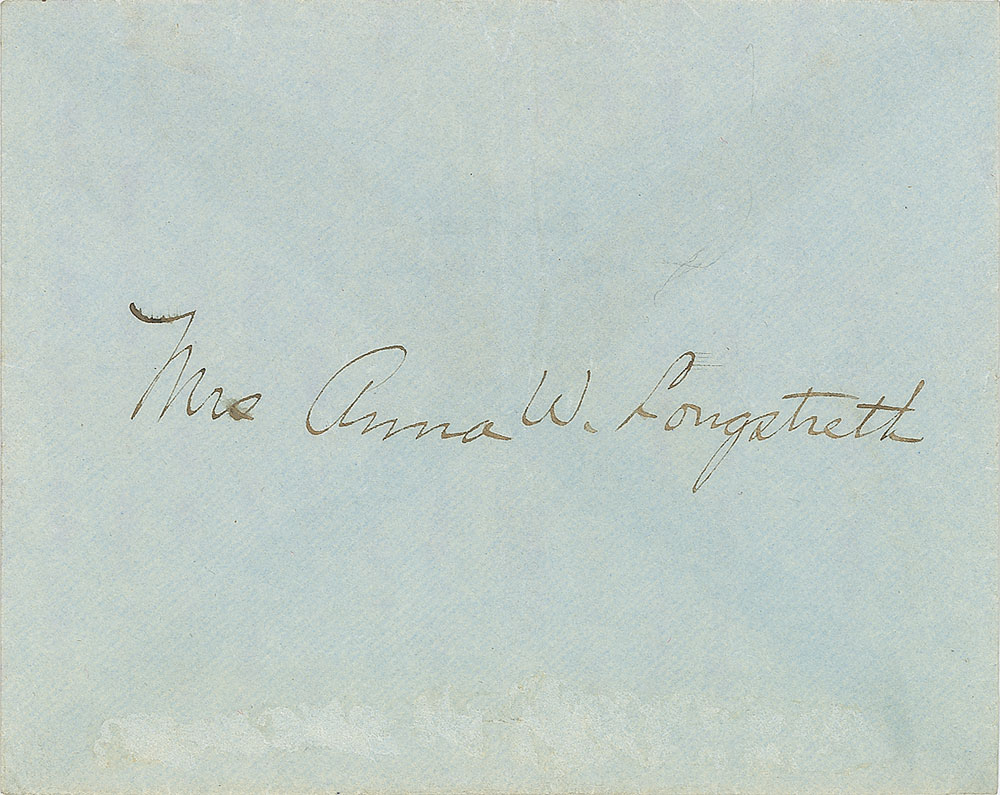 Mrs Anna W. Longstreth